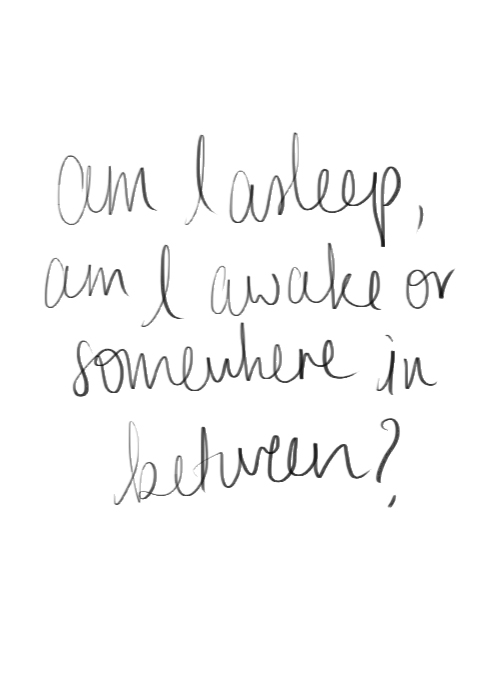 am I asleep,
am I awake or
somewhere in
between?